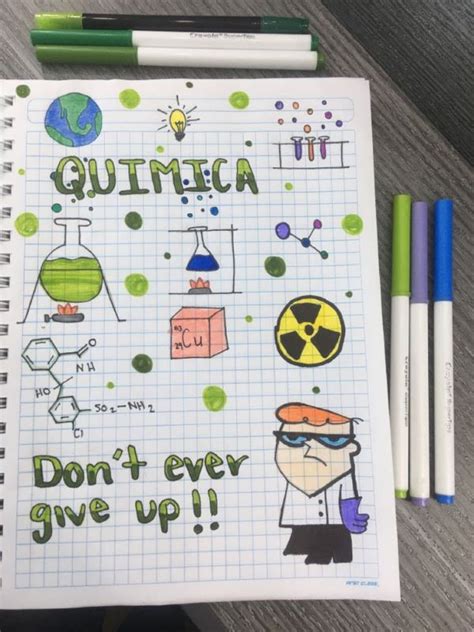 Crayola SuperTips
QUIMICA
63
29 Cu
O
NH
HO
SO₂-NH₂
Cl
Don't ever
give up!!